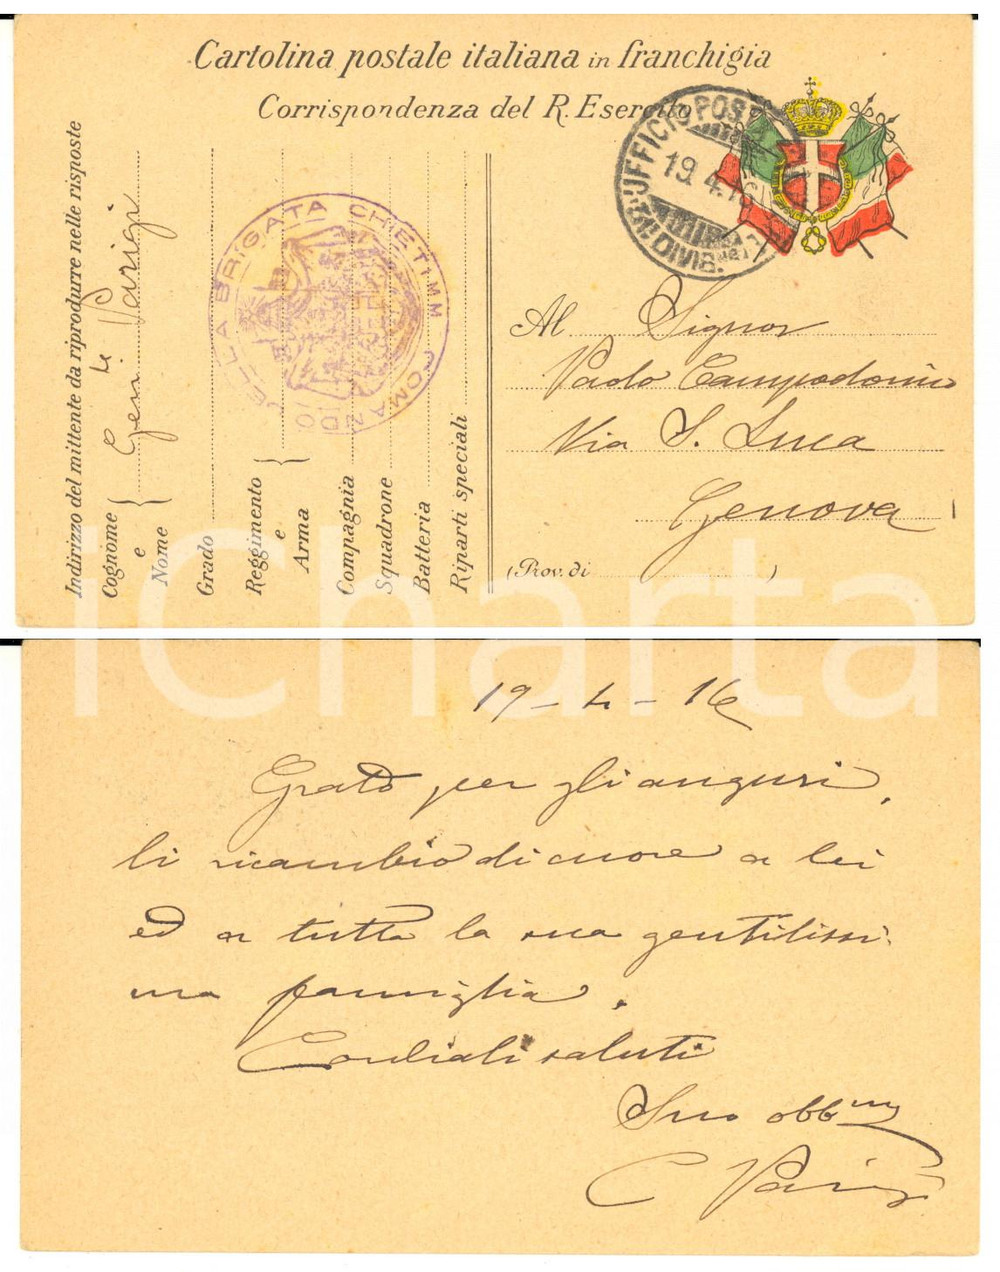 Cartolina postale italiana in franchigia
Corrispondenza del R. Esercito
Indirizzo del mittente da riprodurre nelle risposte
Cognome e Nome
Gen. Parigi
Grado
Reggimento e Arma
Compagnia
Squadrone
Batteria
Riparti speciali
COMANDO DELLA BRIGATA CHIETI
UFFICIO POST
19.4.16
DIVIS.
Al Signor
Paolo Campodonico
Via S. Luca
Genova
(Prov. di )
iCharta
19-4-16
Grato per gli auguri,
li ricambio di cuore a lei
ed a tutta la sua gentilissi-
ma famiglia.
Cordiali saluti
Suo obbmo
C Parigi